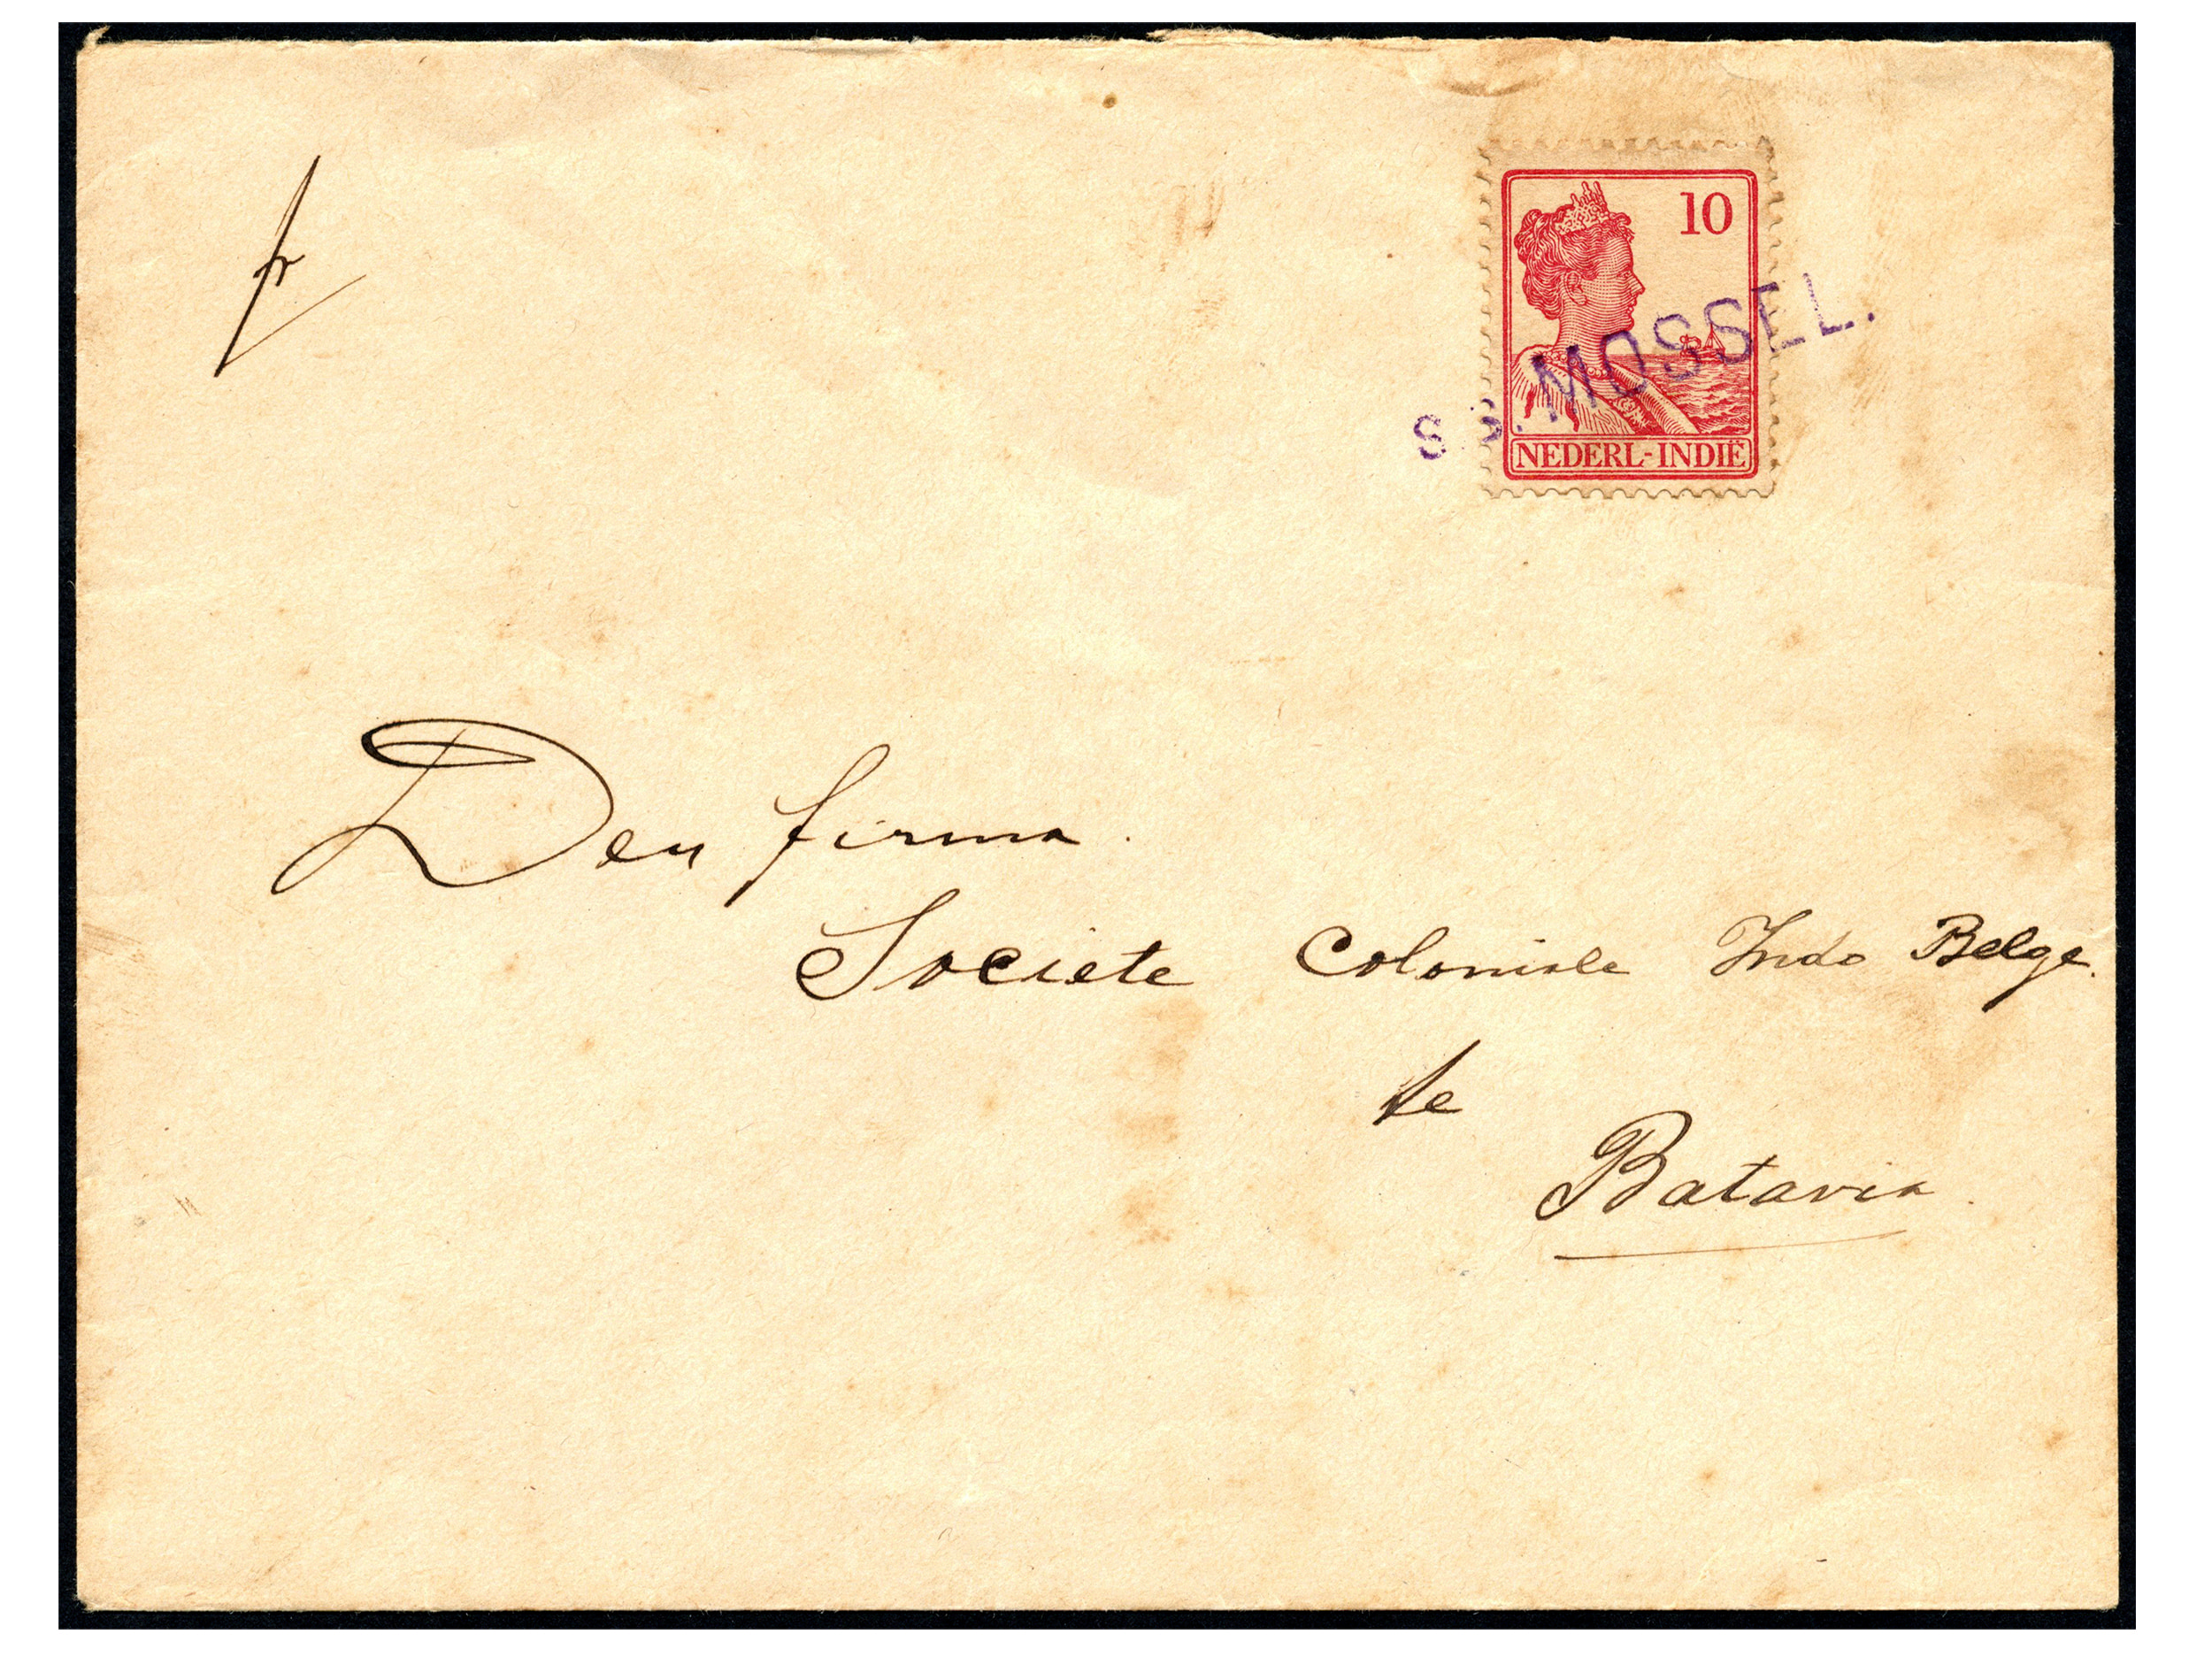 fr
10
S.S. MOSSEL.
NEDERL-INDIË
Den firma.
Societe Coloniale Indo Belge.
te
Batavia.